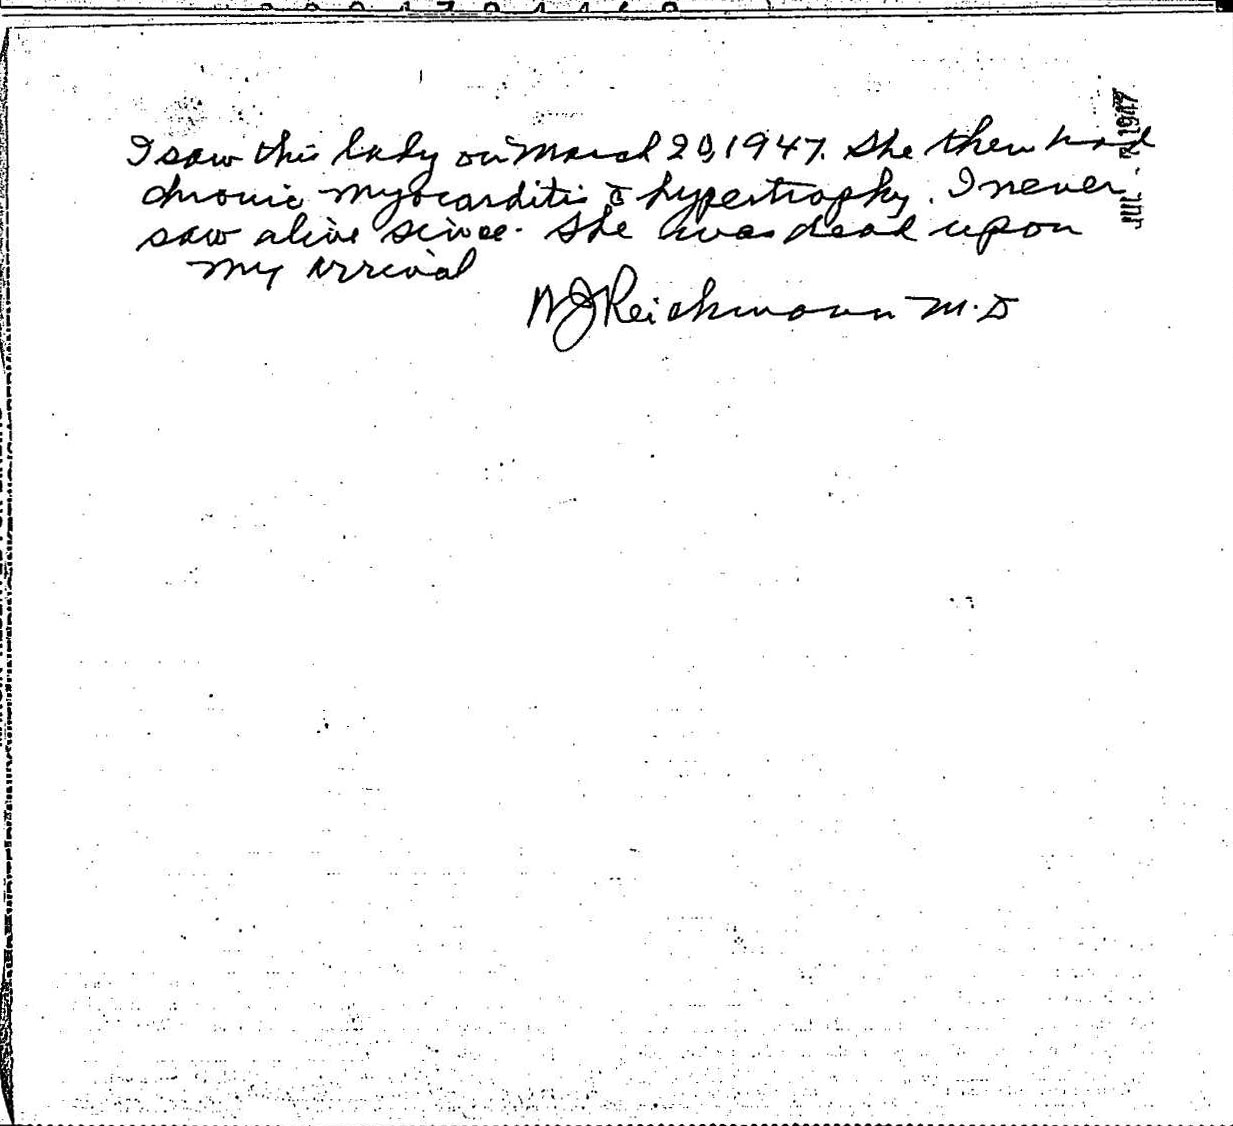 I saw this lady on March 20, 1947. She then had
chronic myocarditis c̄ hypertrophy. I never
saw alive since. She was dead upon
my arrival
WJ Reichmann M.D
JUL 2 1947